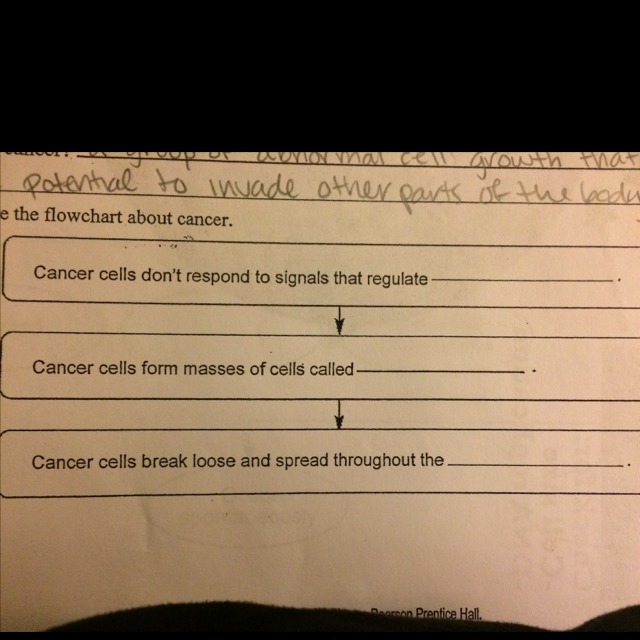 cancer? a group of abnormal cell growth that
potential to invade other parts of the body
e the flowchart about cancer.
Cancer cells don't respond to signals that regulate .
Cancer cells form masses of cells called .
Cancer cells break loose and spread throughout the .
Pearson Prentice Hall.